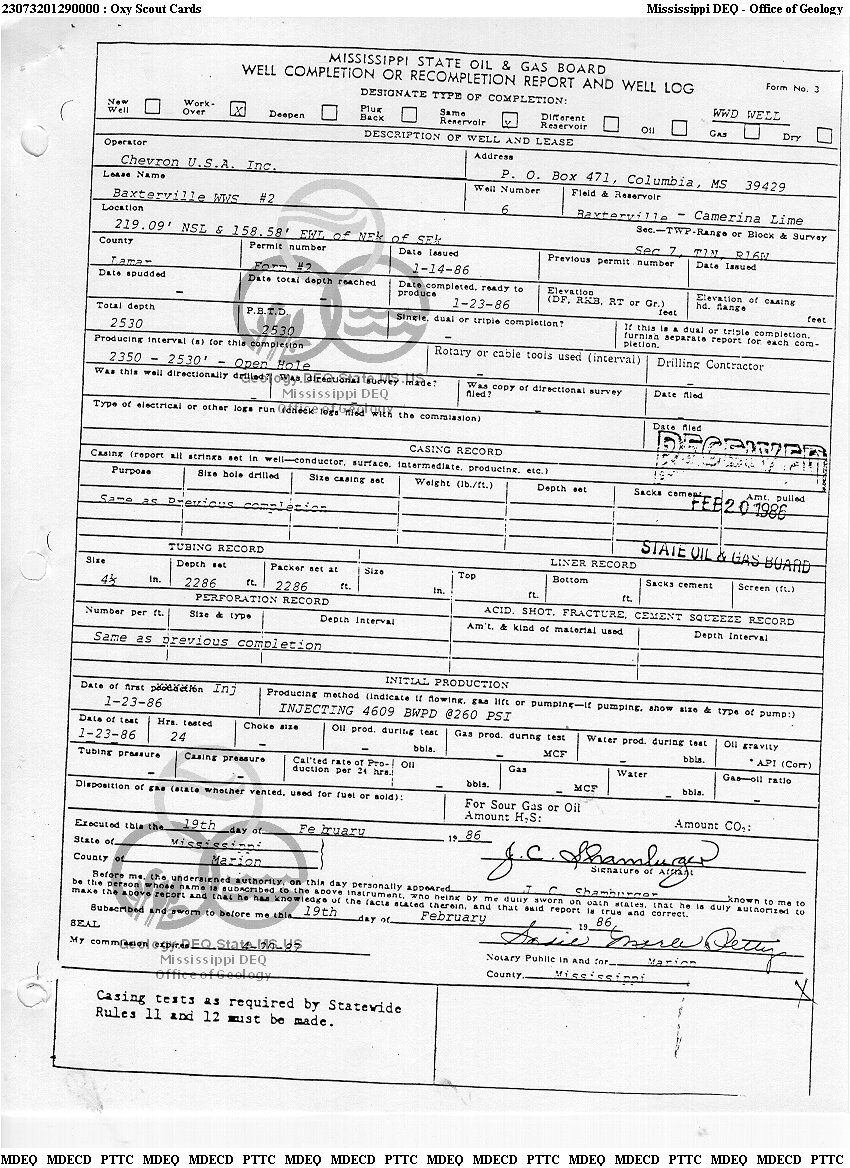 23073201290000 : Oxy Scout Cards Mississippi DEQ - Office of Geology
MISSISSIPPI STATE OIL & GAS BOARD
WELL COMPLETION OR RECOMPLETION REPORT AND WELL LOG Form No. 3
DESIGNATE TYPE OF COMPLETION:
New Well Work-Over X Deepen Plug Back Same Reservoir X Different Reservoir Oil WWD WELL Gas Dry
DESCRIPTION OF WELL AND LEASE
Operator Address
Chevron U.S.A. Inc. P. O. Box 471, Columbia, MS 39429
Lease Name Well Number Field & Reservoir
Baxterville WWS #2 6 Baxterville - Camerina Lime
Location Sec.—TWP-Range or Block & Survey
219.09' NSL & 158.58' EWL of NE¼ of SE¼ Sec 7, T1N, R16W
County Permit number Date Issued Previous permit number Date Issued
Lamar Form #2 1-14-86
Date spudded Date total depth reached Date completed, ready to produce Elevation (DF, RKB, RT or Gr.) feet Elevation of casing hd. flange feet
- - 1-23-86
Total depth P.B.T.D. Single, dual or triple completion? If this is a dual or triple completion, furnish separate report for each completion.
2530 2530 -
Producing interval (s) for this completion Rotary or cable tools used (interval) Drilling Contractor
2350 - 2530' - Open Hole - -
Was this well directionally drilled? Was directional survey made? Was copy of directional survey filed? Date filed
Geology DEQ State MS US
Mississippi DEQ
Office of Geology
Type of electrical or other logs run (check logs filed with the commission) Date filed
RECEIVED
CASING RECORD
Casing (report all strings set in well—conductor, surface, intermediate, producing, etc.)
Purpose Size hole drilled Size casing set Weight (lb./ft.) Depth set Sacks cement Amt. pulled
Same as Previous completion FEB 20 1986
STATE OIL & GAS BOARD
TUBING RECORD LINER RECORD
Size Depth set Packer set at Size Top Bottom Sacks cement Screen (ft.)
4½ in. 2286 ft. 2286 ft. in. ft. ft.
PERFORATION RECORD ACID, SHOT, FRACTURE, CEMENT SQUEEZE RECORD
Number per ft. Size & type Depth Interval Am't. & kind of material used Depth Interval
Same as previous completion
INITIAL PRODUCTION
Date of first production Inj Producing method (indicate if flowing, gas lift or pumping—if pumping, show size & type of pump:)
1-23-86 INJECTING 4609 BWPD @260 PSI
Date of test Hrs. tested Choke size Oil prod. during test Gas prod. during test Water prod. during test Oil gravity
1-23-86 24 - - bbls. - MCF - bbls. * API (Corr)
Tubing pressure Casing pressure Cal'ted rate of Production per 24 hrs. Oil Gas Water Gas—oil ratio
- - - bbls. - MCF - bbls. -
Disposition of gas (state whether vented, used for fuel or sold): For Sour Gas or Oil
Amount H2S: Amount CO2:
Executed this the 19th day of February 19 86
State of Mississippi J.C. Shamburger
County of Marion Signature of Affiant
Before me, the undersigned authority, on this day personally appeared J. C. Shamburger known to me to
be the person whose name is subscribed to the above instrument, who being by me duly sworn on oath states, that he is duly authorized to
make the above report and that he has knowledge of the facts stated therein, and that said report is true and correct.
Subscribed and sworn to before me this 19th day of February 19 86.
SEAL Sadie Merle Petty
My commission expires
Geology DEQ State MS US
Mississippi DEQ
Office of Geology
Notary Public in and for Marion
County, Mississippi
X
Casing tests as required by Statewide
Rules 11 and 12 must be made.
MDEQ MDECD PTTC MDEQ MDECD PTTC MDEQ MDECD PTTC MDEQ MDECD PTTC MDEQ MDECD PTTC MDEQ MDECD PTTC